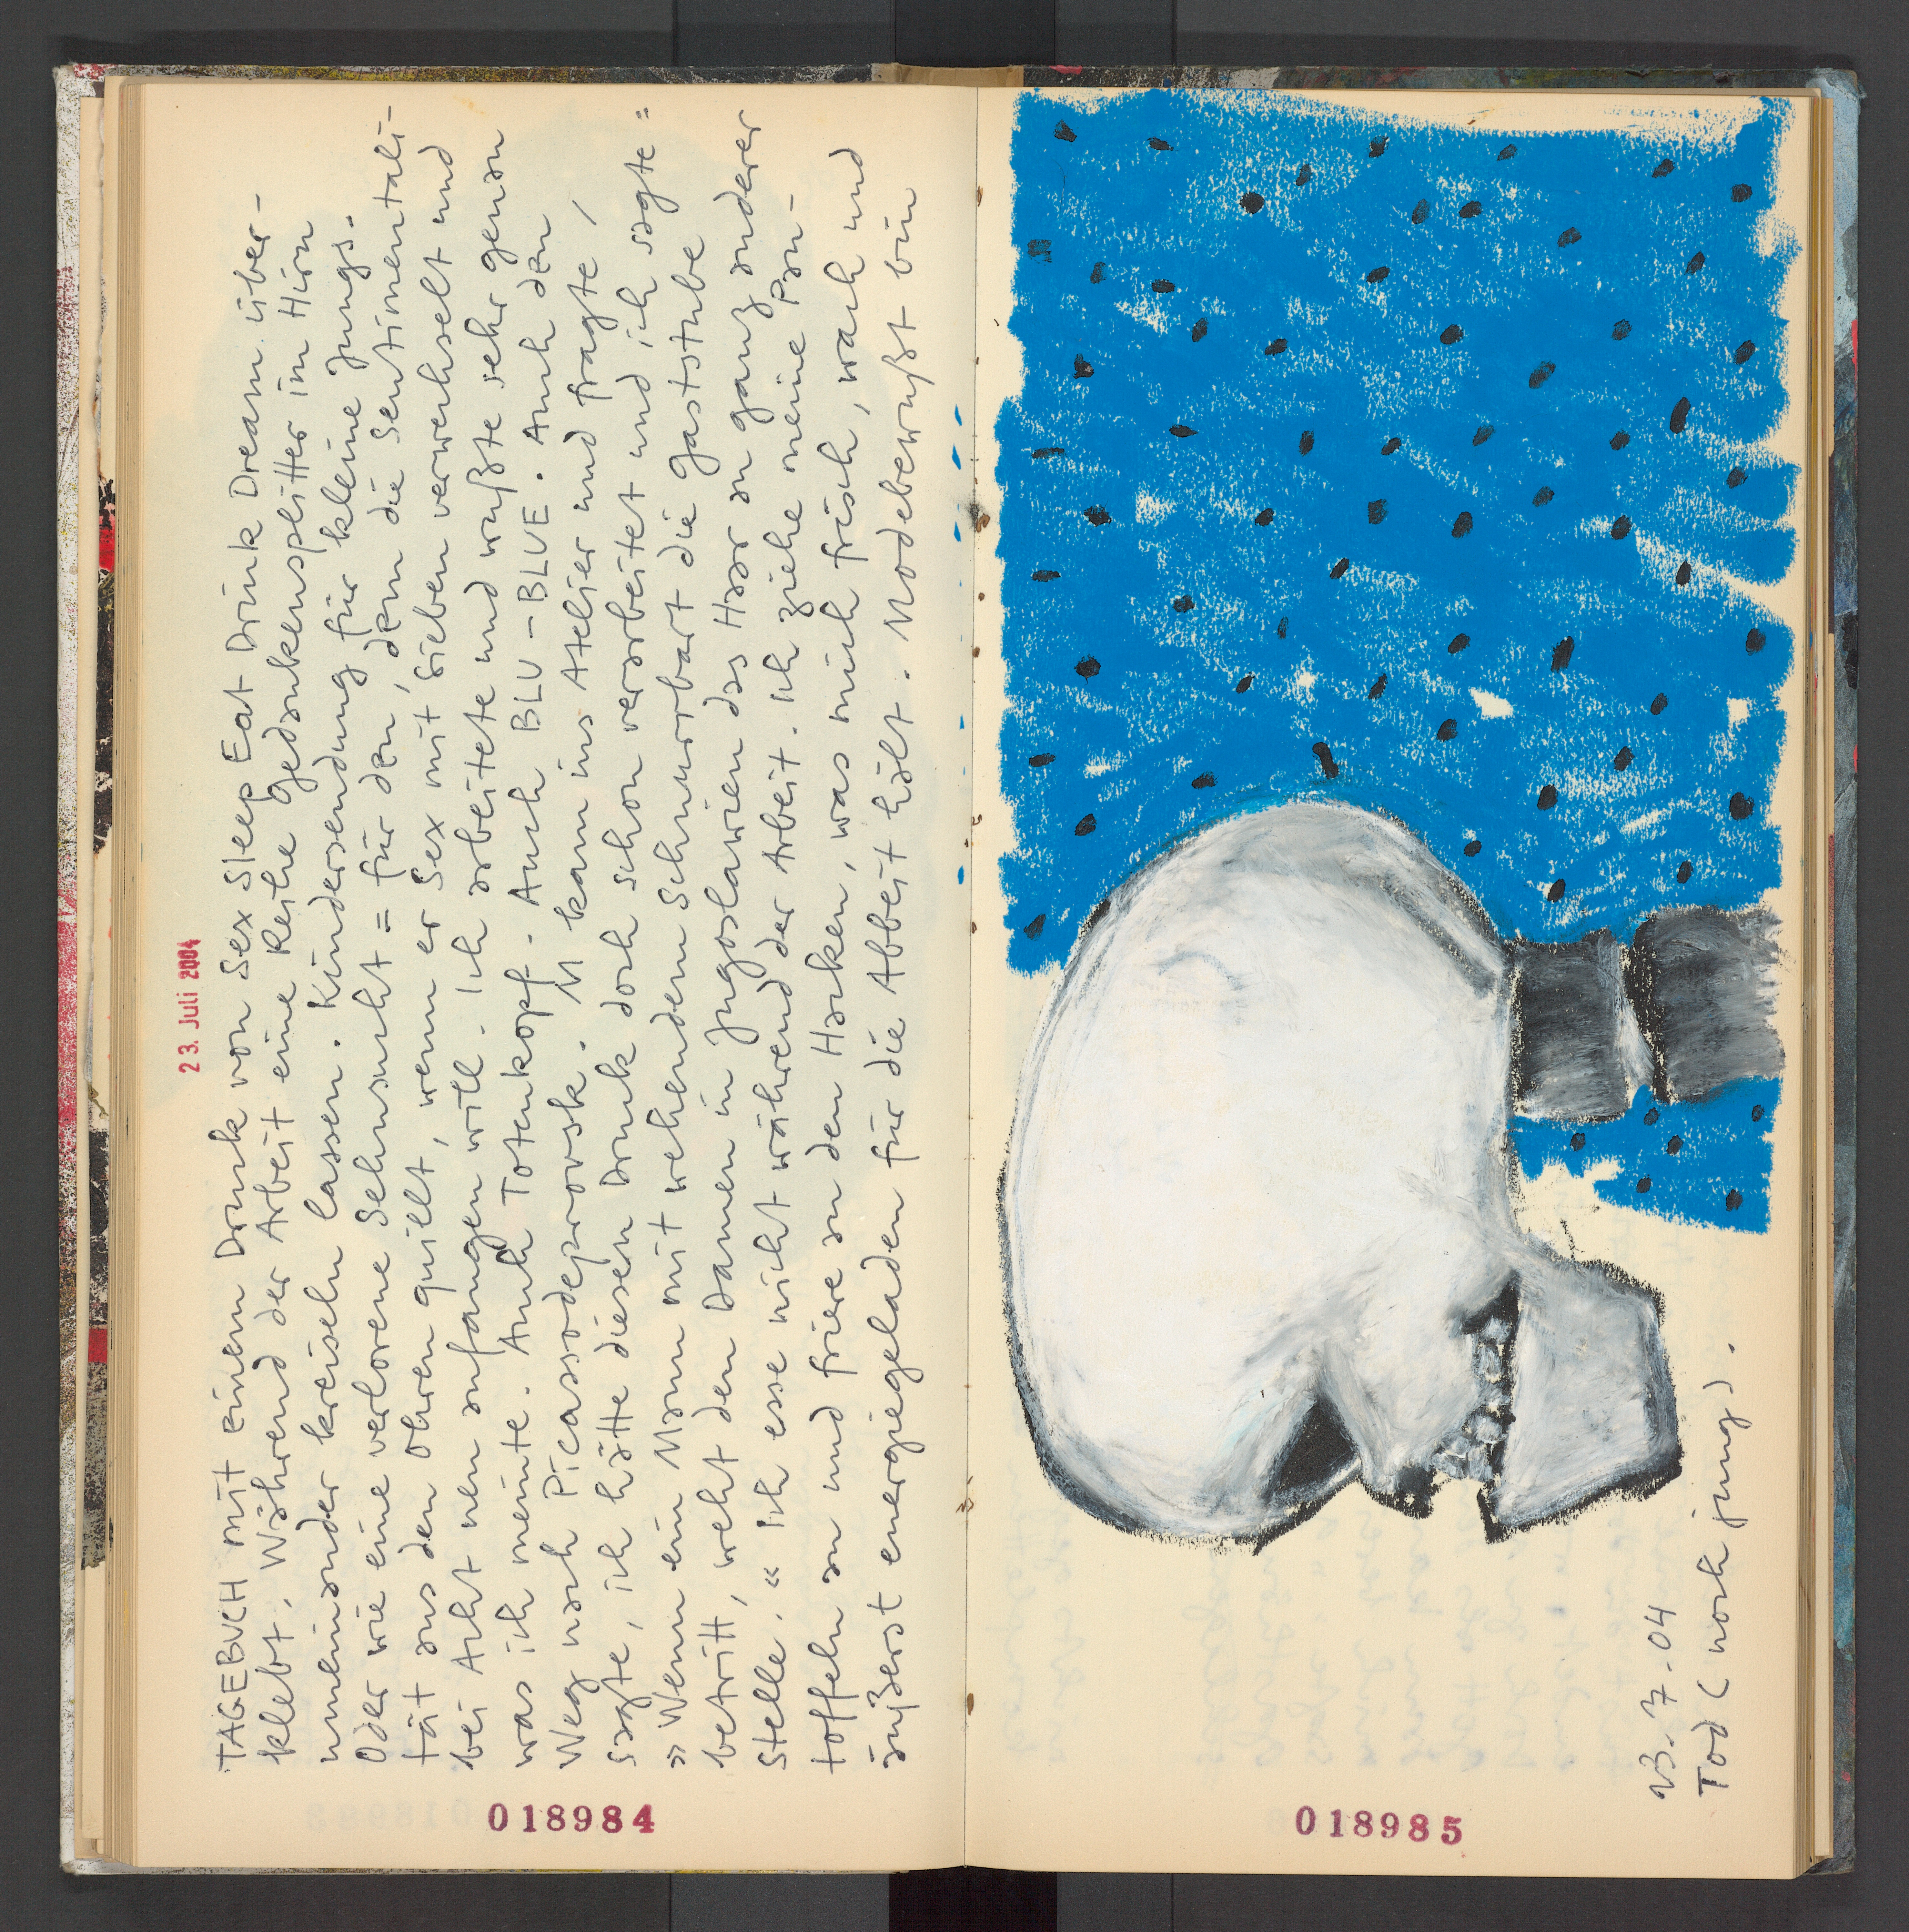 23. Juli 2004
TAGEBUCH mit einem Druck von Sex Sleep Eat Drink Dream über-
klebt. Während der Arbeit eine Reihe Gedankensplitter im Hirn
umeinander kreiseln lassen. Kindersendung für kleine Jungs.
Oder wie eine verlorene Sehnsucht = für den, dem die Sentimentali-
tät aus den Ohren quillt, wenn er Sex mit Sieben verwechselt und
bei Acht neu anfangen will. Ich arbeitete und wußte sehr genau
was ich meinte. Auch Totenkopf. Auch BLU-BLUE. Auch den
Weg nach Picassodeprovsk. M kam ins Atelier und fragte,
sagte, ich hätte diesen Druck doch schon verarbeitet und ich sagte:
»Wenn ein Mann mit wehendem Schnurrbart die Gaststube
betritt, weht den Damen in Jugoslawien das Haar an ganz anderer
Stelle.« Ich esse nicht während der Arbeit. Ich ziehe meine Pan-
toffeln an und friere an den Hacken, was mich frisch, wach und
äußerst energiegeladen für die Abbeit hält. Modebewußt bin
018984
23.7.04
Tod (noch jung).
018985